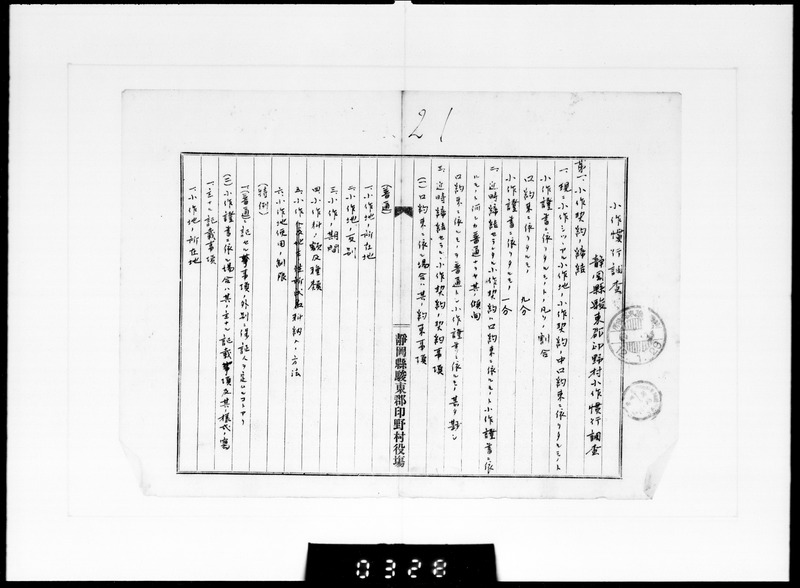 21
小作慣行調査
静岡縣駿東郡印野村小作慣行調査
第一、小作契約ノ締結
一、現ニ小作シツヽアル小作地ノ小作契約中口約束ニ依リタルモノト
小作證書ニ依リタルモノトノ凡ソノ割合
口約束ニ依リタルモノ 九分
小作證書ニ依リタルモノ 一分
二、近時締結セラルヽ小作契約ハ口約束ニ依ルモノト小作證書ニ依
ルモノト何レカ普通ナリヤ其ノ傾向
口約束ニ依ルモノ普通トシ小作證書ニ依ルモノ其ノ数少シ
三、近時締結セラルヽ小作契約ノ契約事項
(一)口約束ニ依ル場合ハ其ノ約束事項
靜岡縣駿東郡印野村役塲
(普通)
一、小作地ノ所在地
二、小作地ノ反別
三、小作ノ期間
四、小作料ノ額及種類
五、小作料納入ノ方法
六、小作地使用ノ制限
(特例)
一、(普通)ニ記セル事項ノ外別ニ保証人ヲ定ムルコトアリ
(二)小作證書ニ依ル場合ハ其ノ主ナル記載事項及其ノ様式ノ寫
一、主ナル記載事項
一、小作地ノ所在地
0328